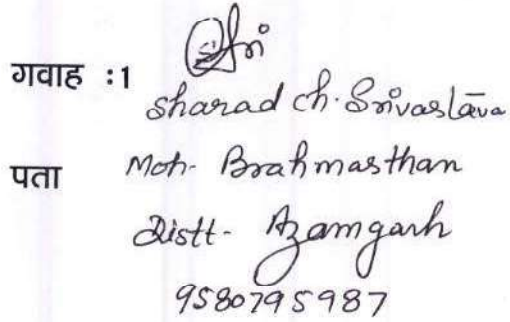 गवाह :1
Sharad Ch. Srivastava
पता Moh- Brahmasthan
Distt- Azamgarh
9580795987